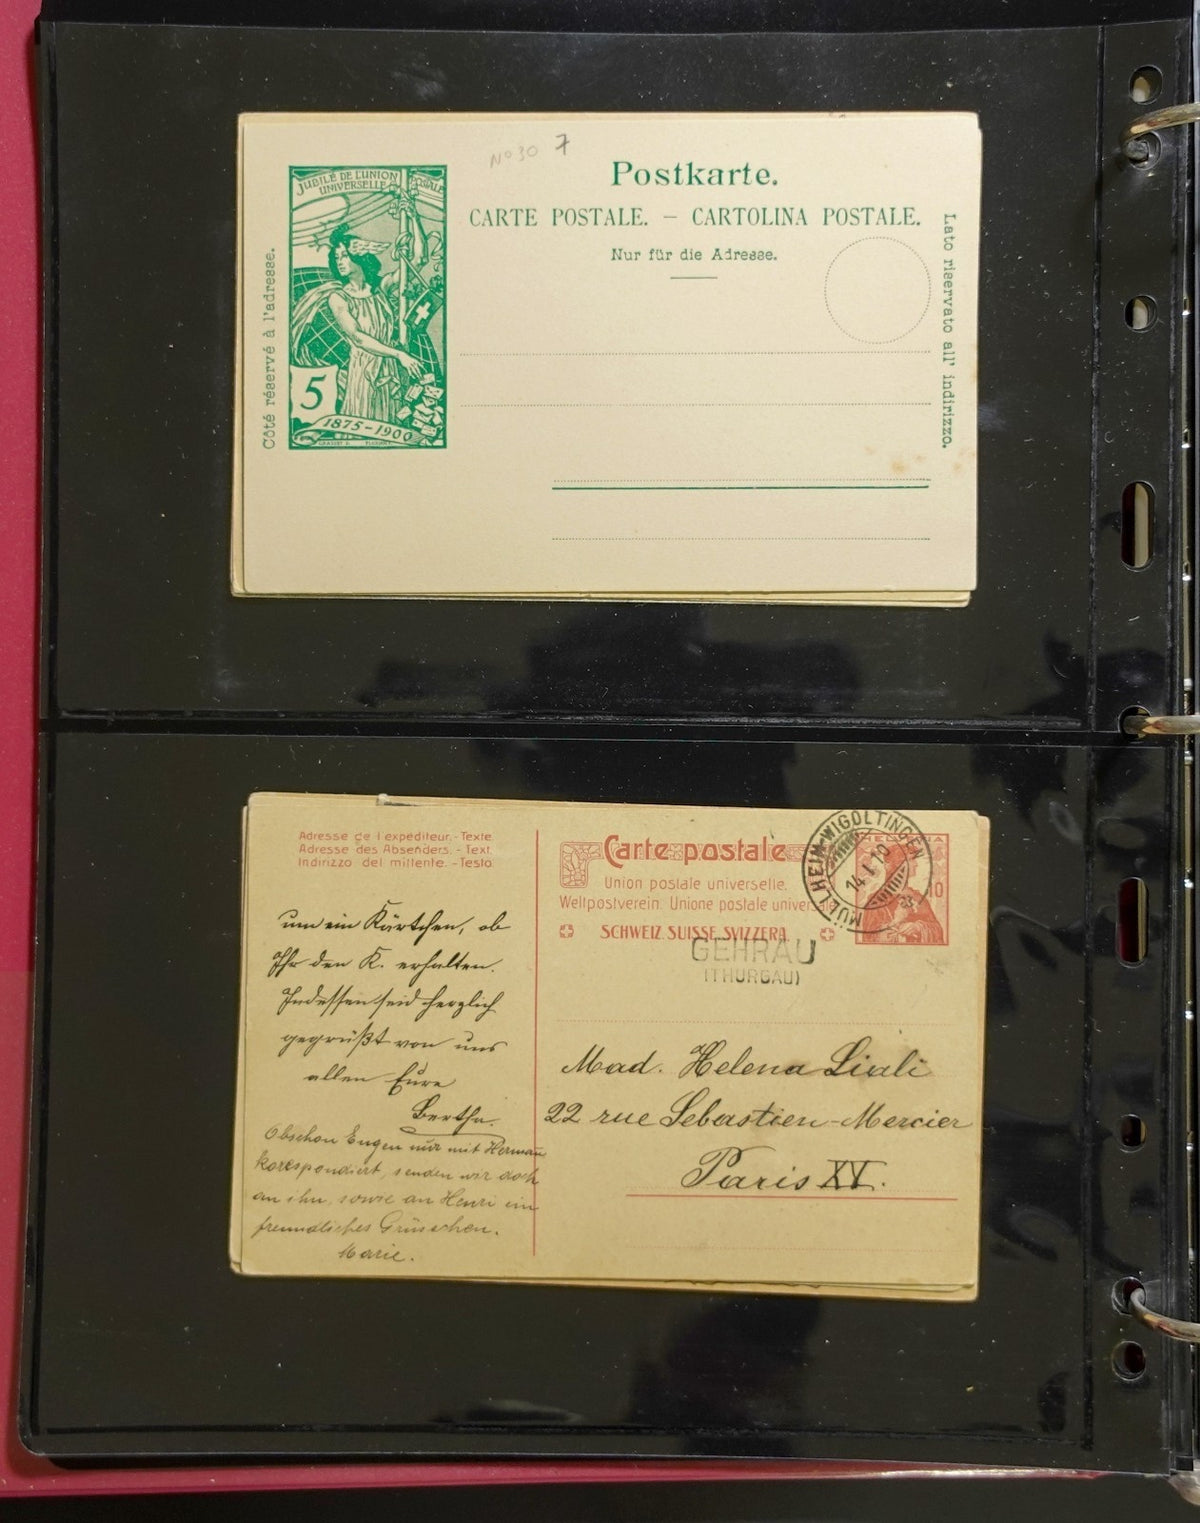 No 30 7
Postkarte.
CARTE POSTALE. – CARTOLINA POSTALE.
Nur für die Adresse.
Côté réservé à l'adresse.
Lato riservato all' indirizzo.
JUBILÉ DE L'UNION
UNIVERSELLE POSTALE
5
1875-1900
GRASSET
Adresse de l'expéditeur. - Texte.
Adresse des Absenders. - Text.
Indirizzo del mittente. - Testo.
um ein Kärtchen, ob
Ihr den K. erhalten.
Indessen seid herzlich
gegrüßt von uns
allen Eure
Bertha.
Obschon Eugen nur mit Hermann
korrespondiert, senden wir doch
an ihn, sowie an Henri ein
freundliches Grüsschen.
Marie.
Carte postale
Union postale universelle.
Weltpostverein. Unione postale universale
SCHWEIZ. SUISSE. SVIZZERA.
HELVETIA
10
MÜLLHEIM-WIGOLTINGEN
14.I.10
23
GEHRAU
(THURGAU)
Mad. Helena Liali
22 rue Sebastien-Mercier
Paris XV.